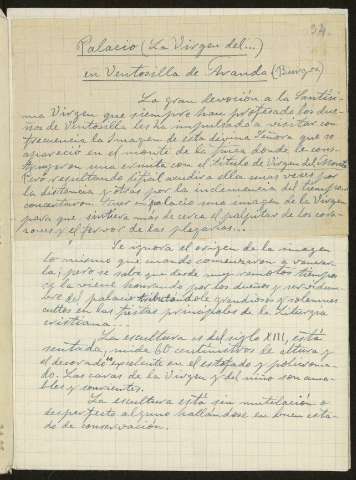 34.
Palacio (La Virgen del...)
en Ventosilla de Aranda (Burgos)
La gran devoción a la Santísi-
ma Virgen que siempre han profesado los due-
ños de Ventosilla les ha impulsado a visitar con
frecuencia la Imagen de esta divina Señora que se
apareció en el monte de la finca donde le cons-
truyeron una ermita con el título de Virgen del Monte
Pero resultando difícil acudir a ella unas veces por
la distancia y otras por la inclemencia del tiempo
concertaron tener en palacio una imagen de la Virgen
para que sintiera más de cerca el palpitar de los cora-
zones y el fervor de las plegarias...
Se ignora el origen de la imagen
lo mismo que cuando comenzaron a venerar
la; pero se sabe que desde muy remotos tiempos
se la viene honrando por los dueños y servidum-
bre del palacio tributándole grandiosos y solemnes
cultos en las fiestas principales de la Liturgia
cristiana...
La escultura es del siglo XIII, está
sentada, mide 60 centímetros de altura y
el decorado excelente en el estofado y policroma-
do. Las caras de la Virgen y del niño son ama-
bles y sonrientes.
La escultura está sin mutilación o
desperfecto alguno hallándose en buen esta-
do de conservación.